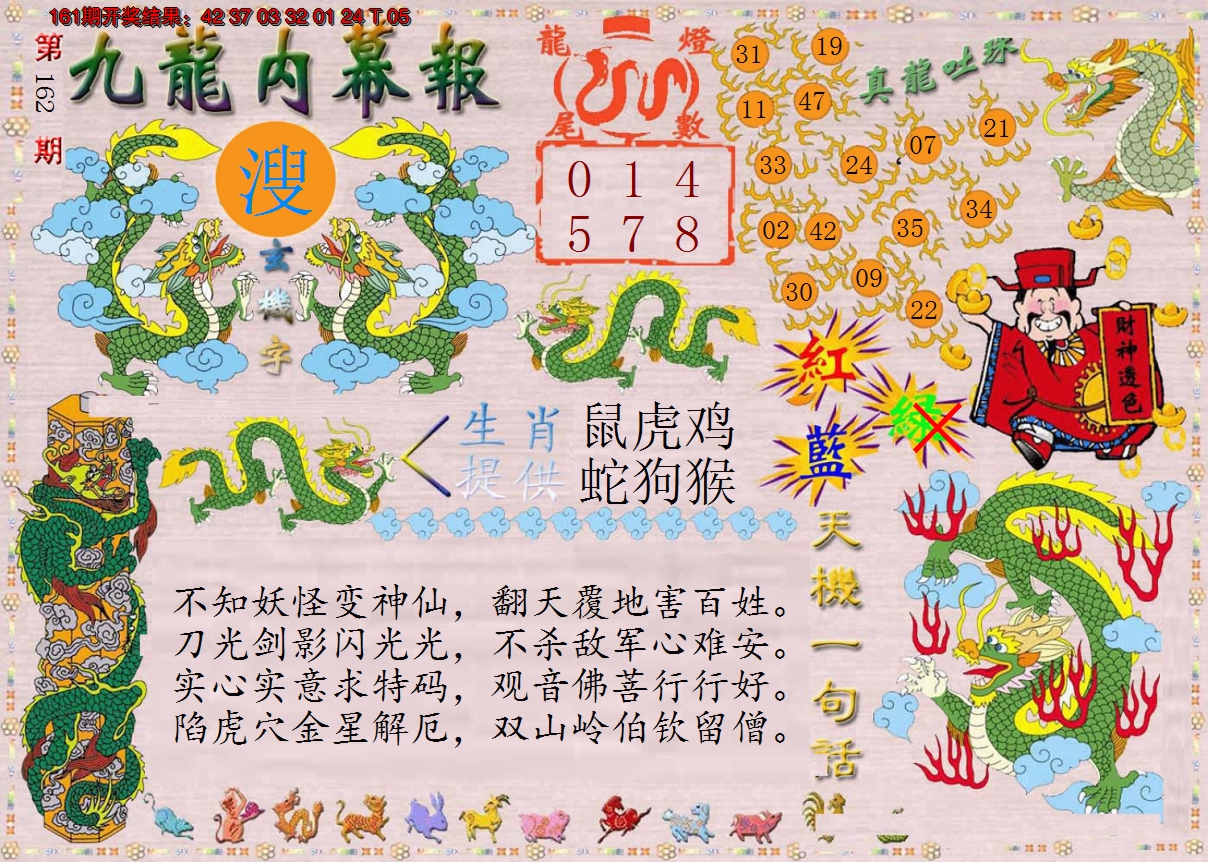 161期开奖结果：42 37 03 32 01 24 T 05
第162期
九龍内幕報
溲
玄機字
龍燈
尾數
0 1 4
5 7 8
真龍吐珠
31 19
11 47
33 24 07 21
02 42 35 34
30 09 22
紅
綠
藍
財神透色
生肖 鼠虎鸡
提供 蛇狗猴
天機一句話
不知妖怪变神仙，翻天覆地害百姓。
刀光剑影闪光光，不杀敌军心难安。
实心实意求特码，观音佛菩行行好。
陷虎穴金星解厄，双山岭伯钦留僧。